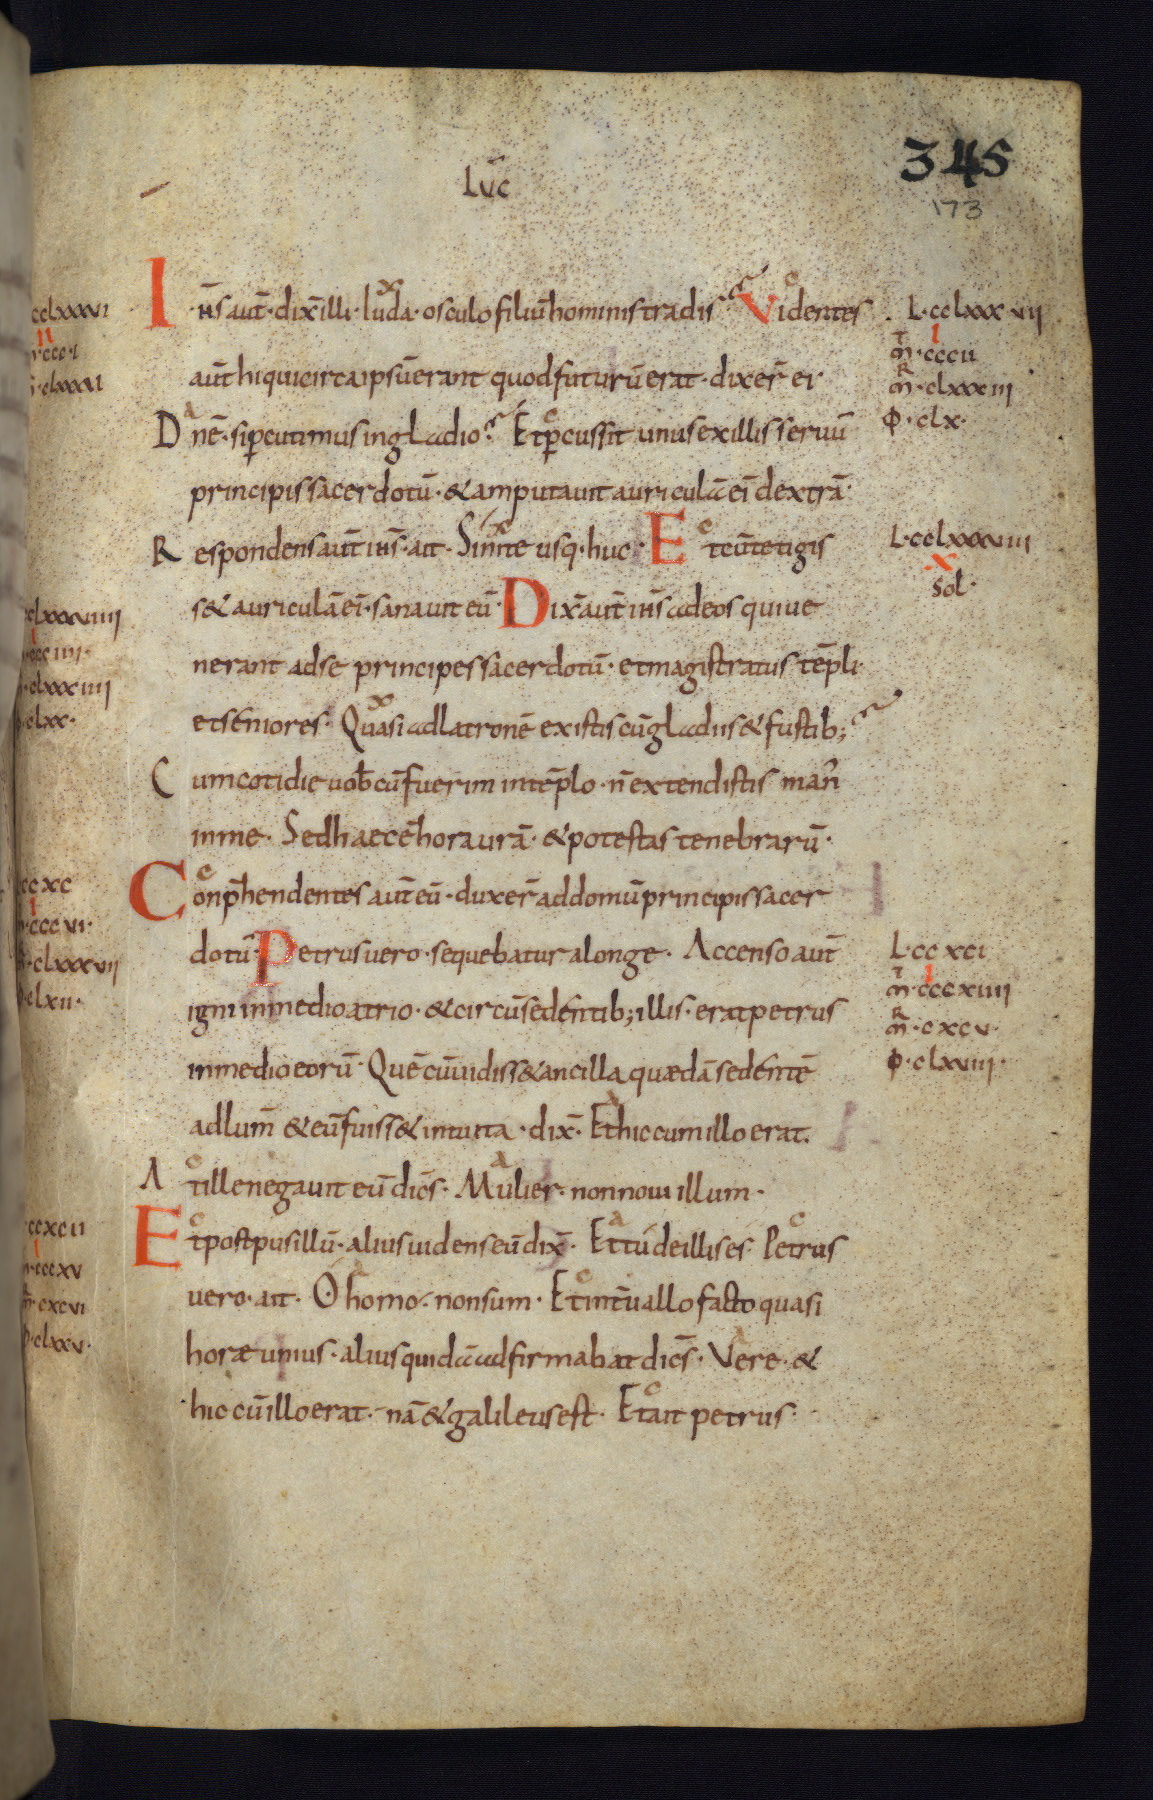 Luc̄
345
173
Ih̅s aut̅ dix̅ illi · Iuda · osculo filiu̅ hominis tradis · Videntes
aut̅ hi qui circa ipsu̅ erant quod futuru̅ erat · dixer̅ ei
Dn̅e · si p̲cutimus in gladio · Et p̲cussit unus ex illis seruu̅
principis sacerdotu̅ · & amputauit auriculā ei̅ dextrā
Respondens aut̅ ih̅s · ait · Sinite usq · huc · Et cu̅ tetigis
s& auriculā ei̅ · sanauit eu̅ · Dix̅ aut̅ ih̅s ad eos qui ue
nerant ad se principes sacerdotu̅ · et magistratus te̅pli ·
et seniores · Quasi ad latrone̅ existis cu̅ gladiis & fustib;
Cum cotidie uob̅cu̅ fuerim in te̅plo · n̅ extendistis man̅
in me · Sed haec e̅ hora ur̅a · & potestas tenebraru̅ ·
Conp̅hendentes aut̅ eu̅ · duxer̅ ad domu̅ principis sacer
dotu̅ · Petrus uero · sequebatur a longe · Accenso aut̅
igni in medio atrio · & circu̅sedentib; illis · erat petrus
in medio eoru̅ · Que̅ cu̅ uidiss& ancilla quædā sedente̅
ad lum̅ & eu̅ fuiss& intuita · dix̅ · Et hic cum illo erat.
At ille negauit eu̅ dic̅s · Mulier · non noui illum ·
Et post pusillu̅ · alius uidens eu̅ dix̅ · Et tu de illis es · Petrus
uero · ait · O homo · non sum · Et int̅uallo facto quasi
horæ unius · alius quidā adfirmabat dic̅s · Vere · &
hic cu̅ illo erat · nā & galileus est · Et ait petrus ·
cclxxxvi
ii
ccci
clxxxvi
L · cclxxxvii
i
m̅ · cccii
m̅ · clxxxiii
Φ · clx ·
L · cclxxxviii
x
Sol ·
clxxxviiii
i
ccciiii ·
clxxxiiii
clxx ·
ccxc
i
cccvi ·
clxxxvii
clxii ·
L · ccxci
i
m̅ · cccxiiii
m̅ · cxcv ·
Φ · clxviiii ·
ccxcii
i
cccxv
cxcvi
clxxv ·